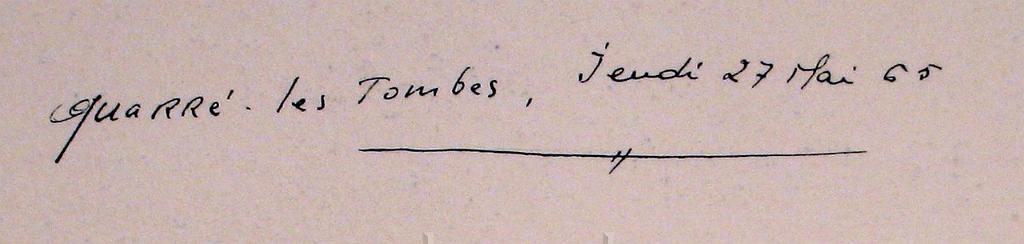 Quarré-les Tombes, Jeudi 27 Mai 65